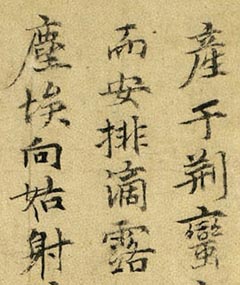 產于荆蠻
而安排滴露
塵埃向姑射